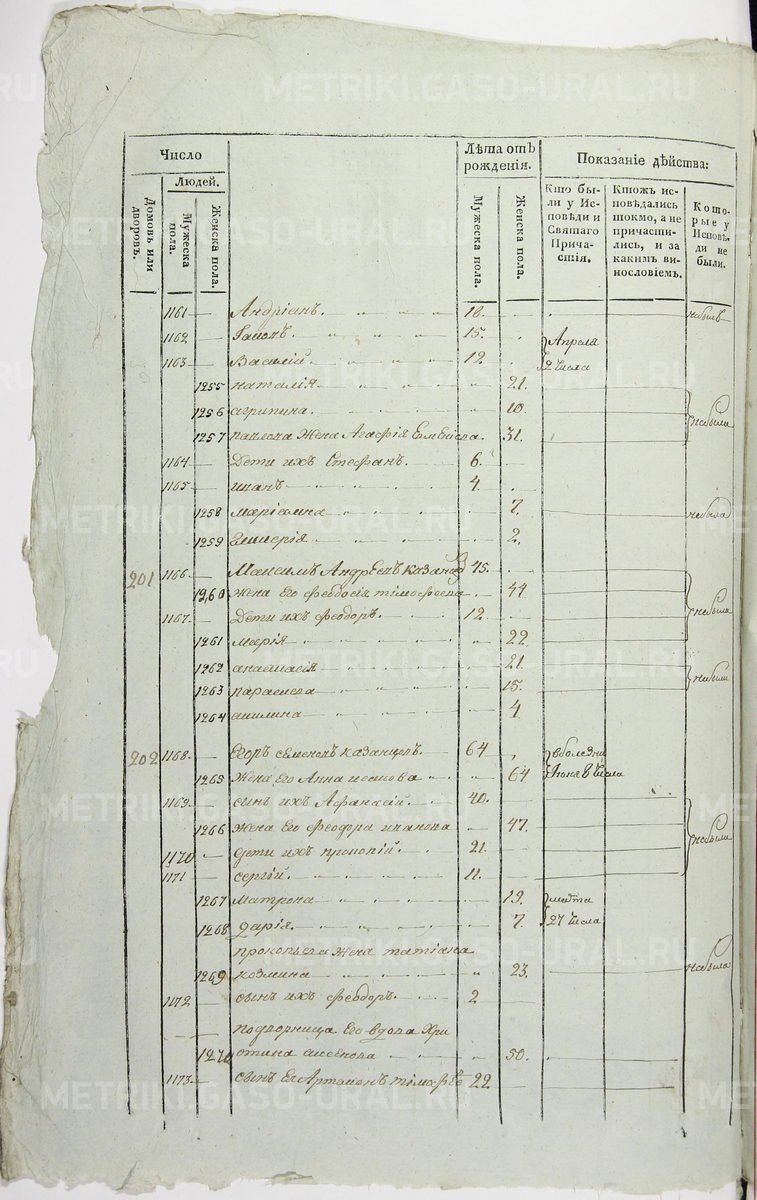 METRIKI.GASO-URAL.RU
Число
Лѣта отъ рожденія.
Показаніе дѣйства:
Людей.
Домовъ или дворовъ.
Мужеска пола.
Женска пола.
Мужеска пола.
Женска пола.
Кто были у Исповѣди и Святаго Причастія.
Ктожъ исповѣдались токмо, а не причастились, и за какимъ винословіемъ.
Которые у Исповѣди не были.
1161 — Андріанъ. 18. небылъ
1162 — 15. Апреля
1163 — Василій. 12. 2 числа
1255 наталія 21.
1256 агрипина. 10. небыли
1257 павлова жена Агафія 31.
1164 — Дети ихъ Стефанъ. 6.
1165 — иванъ 4.
1258 маріамна 7. небыла
1259 2.
201 1166 — Маѯимъ Андреевъ казанцовъ 45.
1260 жена Его феодосія тимофеева 44
1167 — Дети ихъ феодоръ 12. небыли
1261 марія 22
1262 анастасія 21.
1263 параскева 15. небыли
1264 акилина 4
202 1168 — Егоръ семеновъ казанцовъ. 64 вболезни
1265 жена Его Анна 64 Июня 8 числа
1169 — сынъ ихъ Афанасій. 40.
1266 жена Его феодора иванова 47. небыли
1170 — дети ихъ прокопій. 21.
1171 — сергій. 11.
1267 матрона 19. марта
1268 дарія. 7. 27 числа
прокопьева жена татіана
1269 козмина 23. небыла
1172 — сынъ ихъ феодоръ 2
подворница Его вдова Хри
1270 стина 50.
1173 — сынъ Ея Артамонъ тимофѣе 22